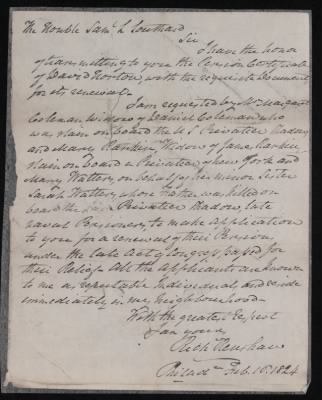 The Honble Saml L Southard
Sir
I have the honor
of transmitting to you the Pension Certificate
of David Norton, with the requisite Document
for its renewal.
I am requested by Mrs Margaret
Coleman Widow of Daniel Coleman who
was slain on board the US Privateer
and Mary Rankin Widow of James Rankin
slain on board a Privateer of New York and
Mary Watters, on behalf of her minor Sister
Sarah Watters, whose Father was killed on
board the Privateer late
Naval Pensioners, to make application
to you for a renewal of their Pension
under the late Act of Congress, passed for
their Relief. All the applicants are known
to me as reputable Individuals and reside
immediately in my neighbourhood.
With the greatest Respect
I am yours
Rich Renshaw
Philada Feb. 10. 1824